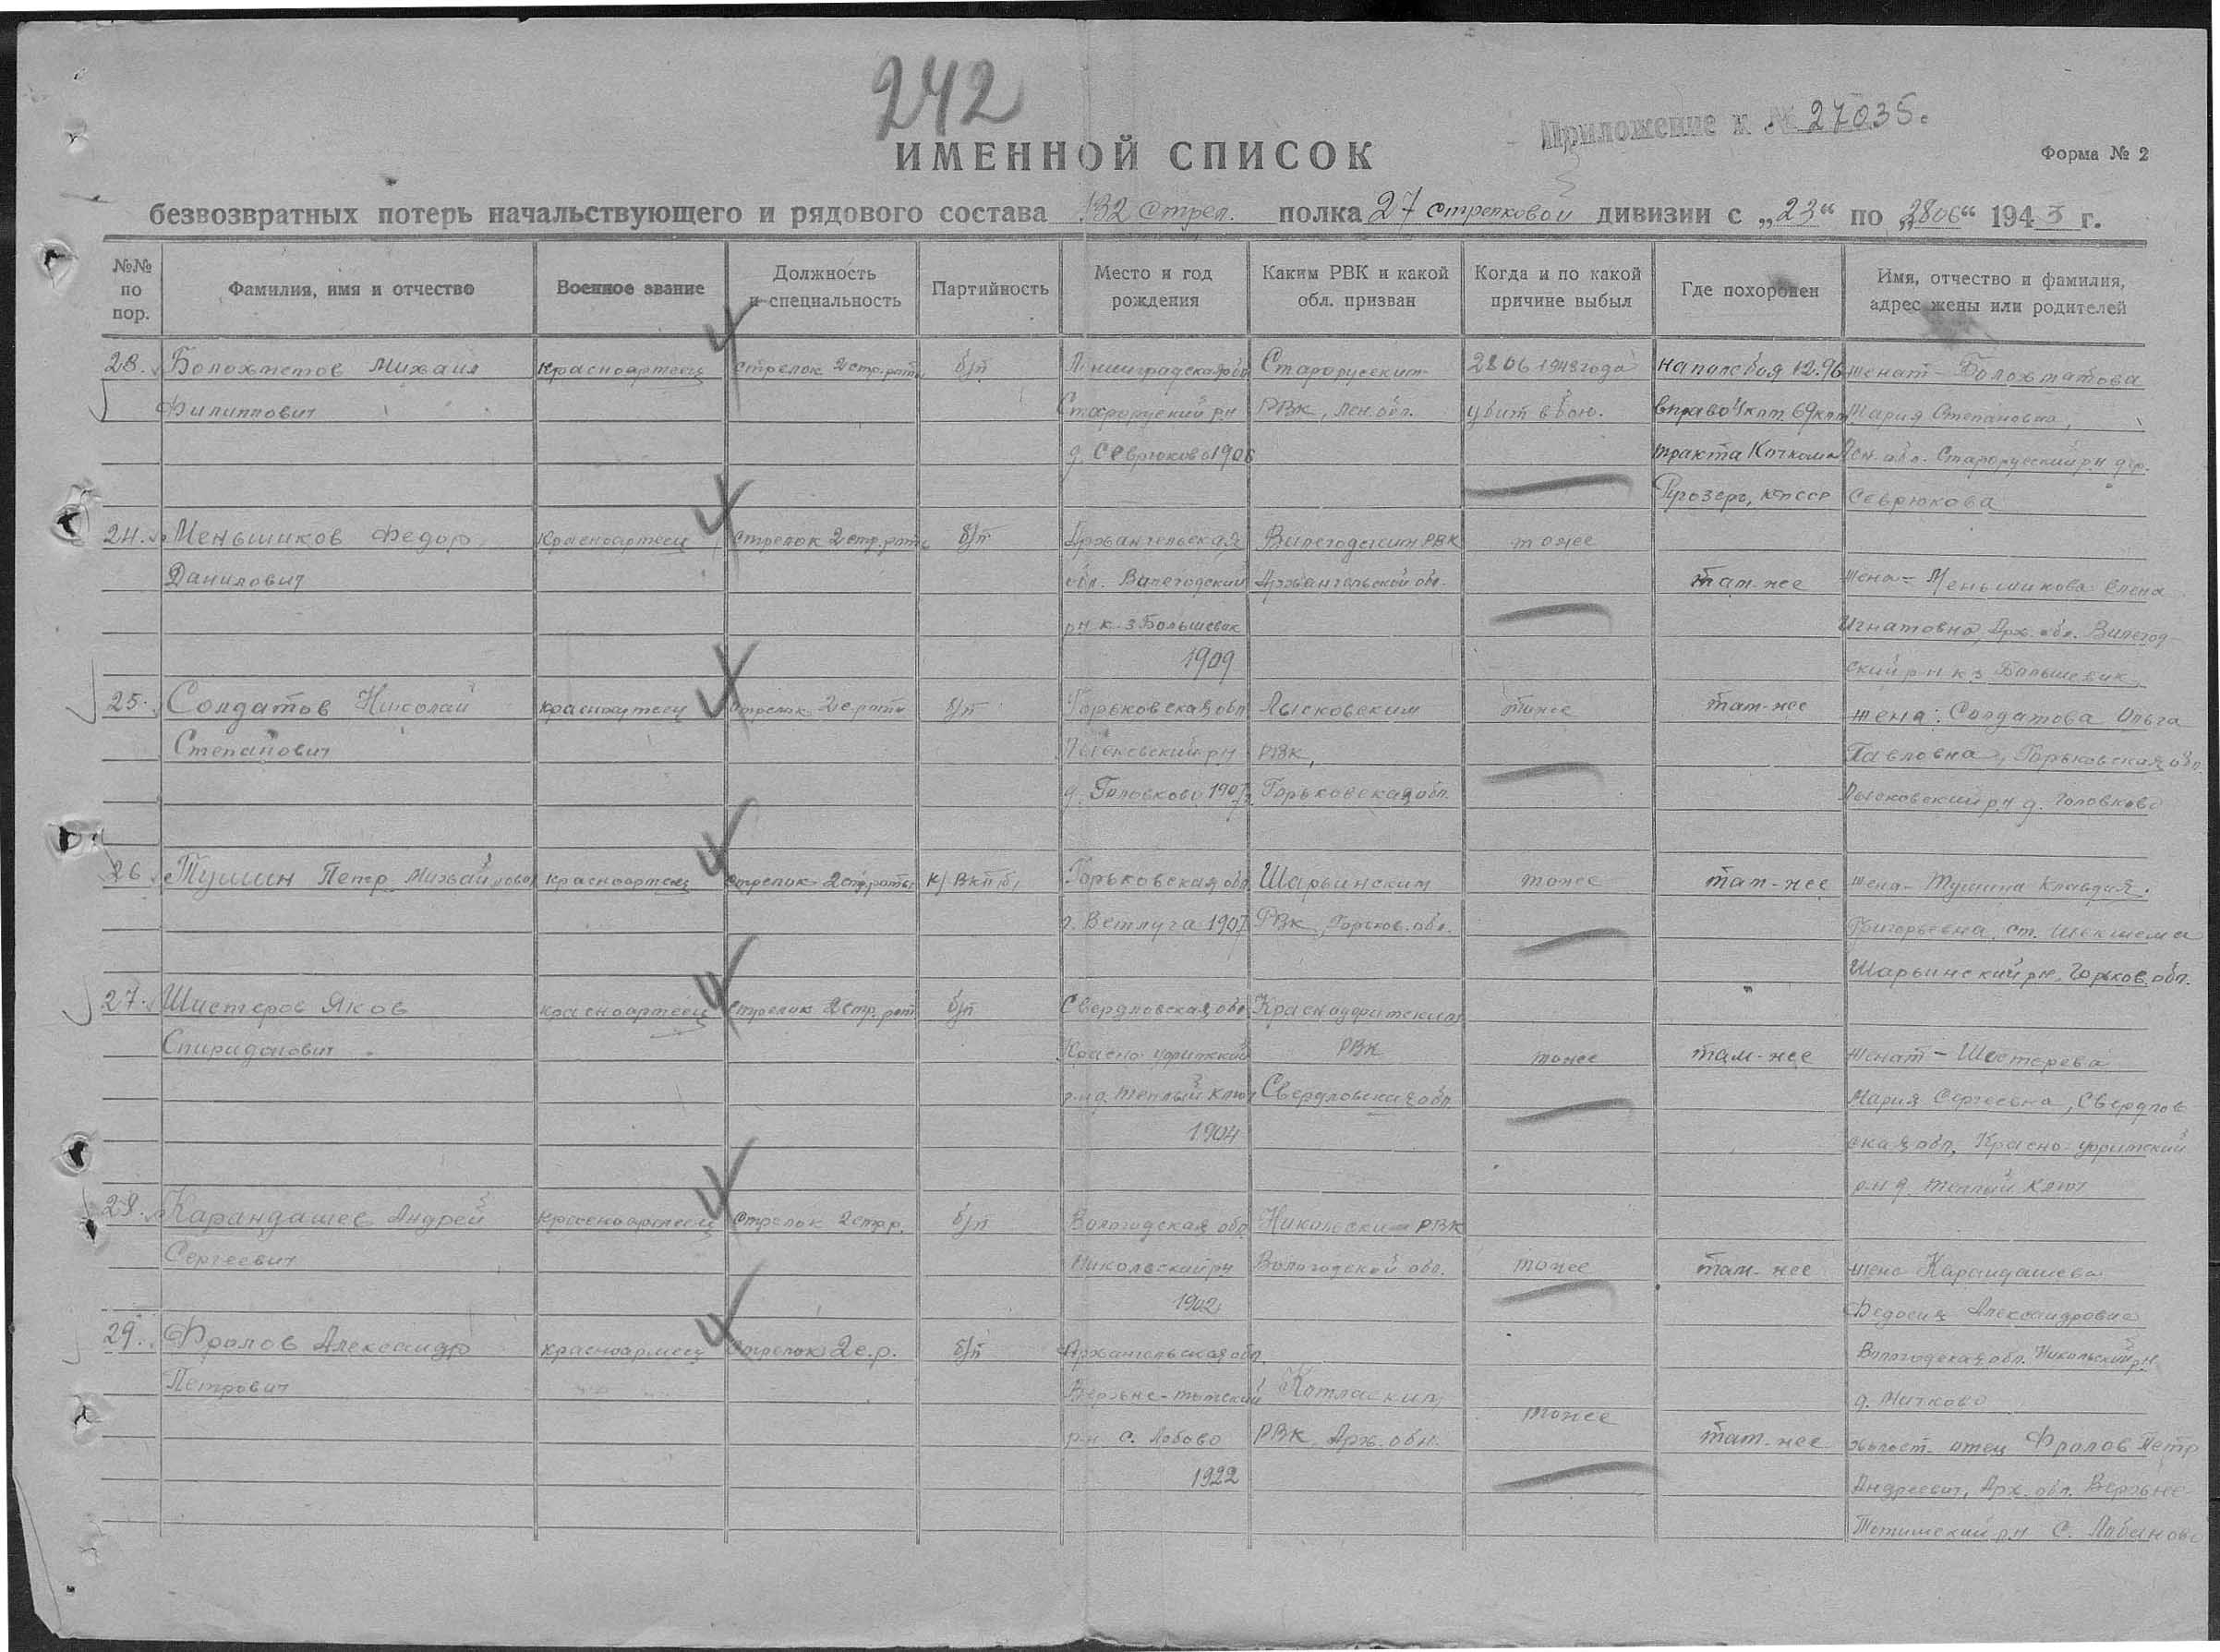 242
Приложение к № 27035.
ИМЕННОЙ СПИСОК
Форма № 2
безвозвратных потерь начальствующего и рядового состава 132 Стрел. полка 27 стрелковой дивизии с „23“ по „28 06“ 1943 г.
№№ по пор.
Фамилия, имя и отчество
Военное звание
Должность и специальность
Партийность
Место и год рождения
Каким РВК и какой обл. призван
Когда и по какой причине выбыл
Где похоронен
Имя, отчество и фамилия, адрес жены или родителей
23. Болохматов Михаил красноармеец стрелок 2 стр. роты б/п Ленинградская обл Старорусским 28 06 1943 года на поле боя 12.96 женат - Болохматова
Филиппович Старорусский рн РВК, Лен. обл. убит в бою. вправо 4 клт. 69 клт Мария Степановна,
д. Севрюково 1906 тракта Кочкома Лен. обл. Старорусский р-н дер.
Ругозеро, КФССР Севрюкова
24. Меньшиков Федор красноармеец стрелок 2 стр. роты б/п Архангельская Вилегодским РВК тоже
Данилович обл. Вилегодский Архангельской обл. там-же жена - Меньшикова Елена
рн к-з Большевик Игнатовна, Арх. обл. Вилегод-
1909 ский р н к з Большевик
25. Солдатов Николай красноармеец стрелок 2 с роты б/п Горьковская обл Лысковским тоже там-же жена: Солдатова Ольга
Степанович Лысковский рн РВК, Павловна, Горьковская обл.
д. Головково 1907 Горьковская обл. Лысковский р н д. Головково
26. Тушин Петр Михайлович красноармеец стрелок 2 стр роты к/ВКП/б/ Горьковская обл Шарьинским тоже там-же жена - Тушина Клавдия
г. Ветлуга 1907 РВК, Горьков. обл. Григорьевна, ст. Шекшема
Шарьинский рн, Горьков. обл.
27. Шистеров Яков красноармеец стрелок 2 стр. рот б/п Свердловская обл Красноуфимским
Спиридонович Красно уфимский РВК тоже там-же женат - Шестерева
р-н д. Теплый Ключ Свердловская обл. Мария Сергеевна, Свердлов
1904 ская обл, Красно-уфимский
р-н д. Теплый Ключ
28. Карандашев Андрей красноармеец стрелок 2 стр р. б/п Вологодская обл. Никольским РВК
Сергеевич Никольский рн Вологодской обл. тоже там-же жена Карандашева
1902 Федосия Александровна
Вологодская обл. Никольский р-н
29. Фролов Александр красноармеец стрелок 2 с.р. б/п Архангельская обл.
Петрович Верхне- Котласким д.
р-н с. Лобово РВК Арх. обл. тоже там-же холост- отец Фролов Петр
1922 Андреевич, Арх. обл. Верхне-
р н с. Лобаново